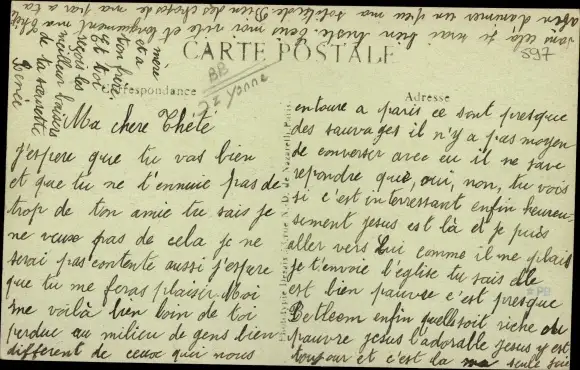 CARTE POSTALE
Correspondance
Adresse
BB
Yonne
597
Ma chere Thété
j'espere que tu vas bien
et que tu ne t'ennuie pas de
trop de ton amie tu sais je
ne veux pas de cela je ne
serai pas contente aussi j'espere
que tu me feras plaisir. Moi
me voilà bien loin de toi
perdue au milieu de gens bien
different de ceux qui nous
entoure a paris ce sont presque
des sauvages il n'y a pas moyen
de converser avec eu il ne save
repondre que, oui, non, tu vois
si c'est interressant enfin heureu-
sement jesus est là et je puis
aller vers Lui comme il me plait
je t'envoie l'église tu sais elle
est bien pauvre c'est presque
Betleem enfin quelle soit riche ou
pauvre jesus l'adorable jesus y est
toujour et c'est la ma seule joie
sans cela je bien triste. Ecris moi vite et longuement ma Thété
afin d'animer un peu ma solitude. Bien des choses de ma par a ta
mère
et a
ton frère
et toi
reçois les
meilleur baisers
de ta
PB